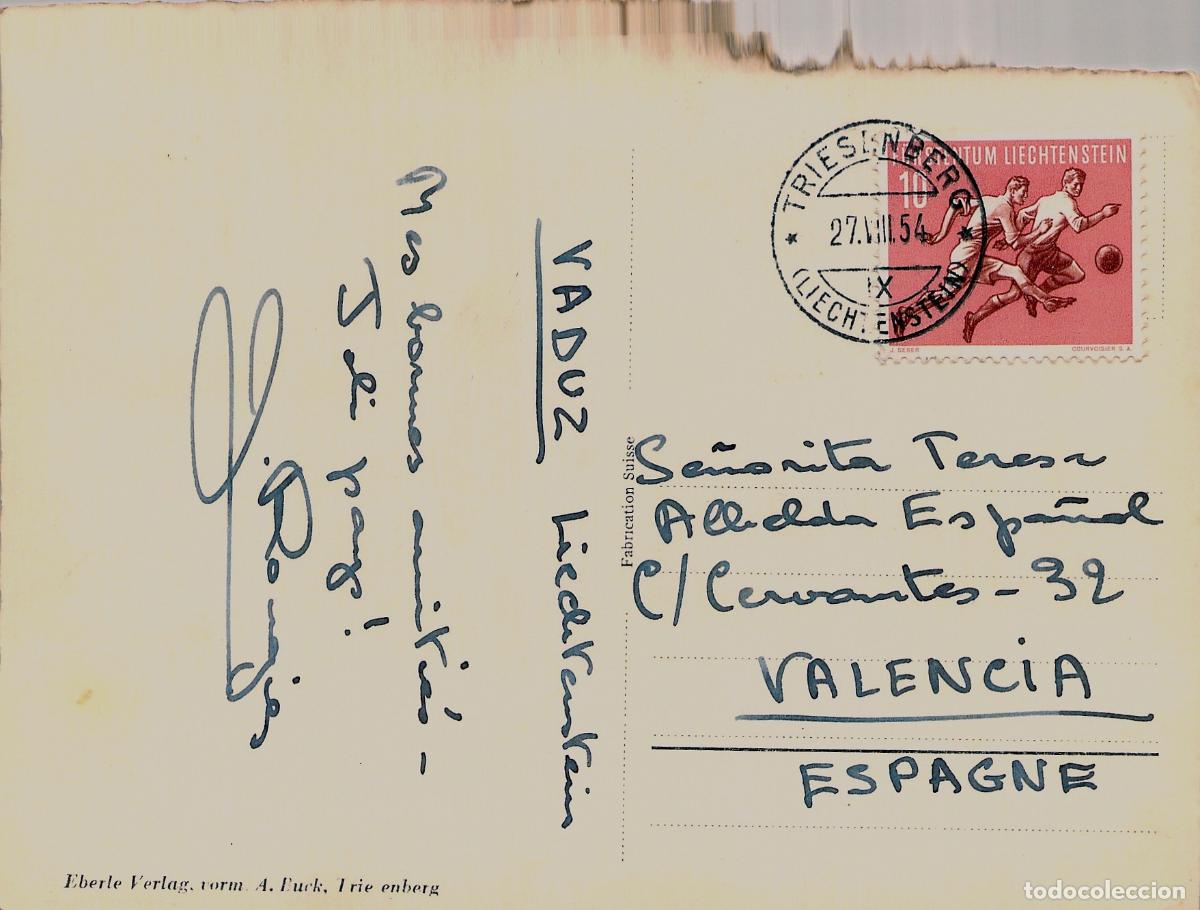 VADUZ Liechtenstein
Mes bonnes amitiés -
Joli pays!
Fabrication Suisse
Eberle Verlag, vorm. A. Buck, Trie enberg
TRIESENBERG
27.VIII.54
IX
(LIECHTENSTEIN)
FÜRSTENTUM LIECHTENSTEIN
10
J. SEGER
COURVOISIER S.A.
Señorita Teresa
Español
C/ Cervantes - 32
VALENCIA
ESPAGNE
todocoleccion